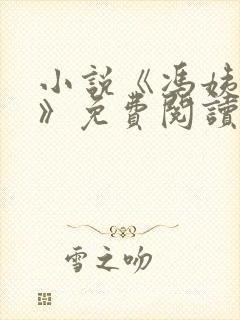 小説《馮姨
》免費閱讀
雪之吻